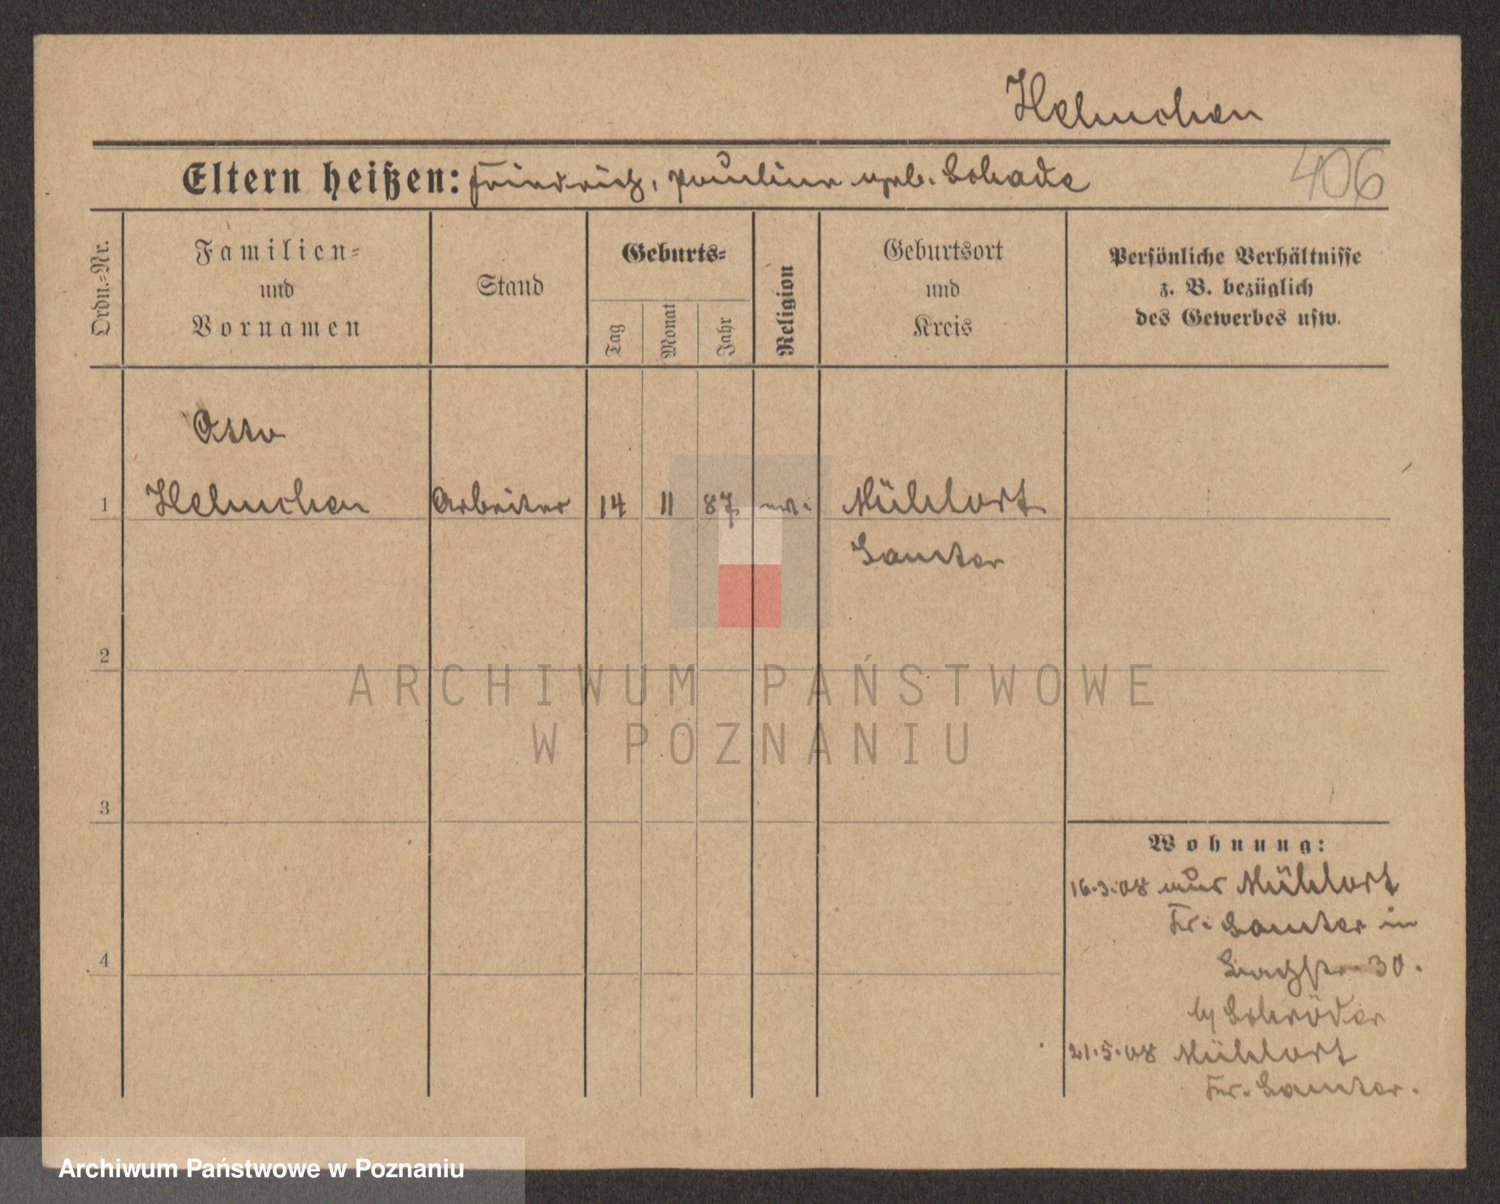 Helmchen
Eltern heißen: Friedrich, Pauline geb. Schade
406
Ordn.-Nr.
Familien-
und
Vornamen
Stand
Geburts-
Tag
Monat
Jahr
Religion
Geburtsort
und
Kreis
Persönliche Verhältnisse
z. B. bezüglich
des Gewerbes usw.
Otto
1 Helmchen Arbeiter 14 11 87 ev. Mühlort
Samter
2
ARCHIWUM PAŃSTWOWE
W POZNANIU
3
Wohnung:
16.3.08 aus Mühlort
Kr. Samter in
30.
b/ Schröder
4
21.5.08 Mühlort
Kr. Samter.
Archiwum Państwowe w Poznaniu